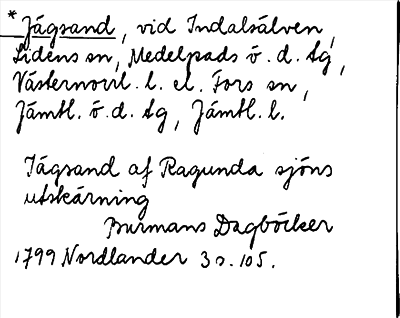 * Jågsand, vid Indalsälven,
Lidens sn, Medelpads ö. d. tg,
Västernorrl. l. el. Fors sn,
Jämtl. ö. d. tg, Jämtl. l.
Tågsand af Ragunda sjöns
utskärning
Burmans Dagböcker
1799 Nordlander 3 s. 105.